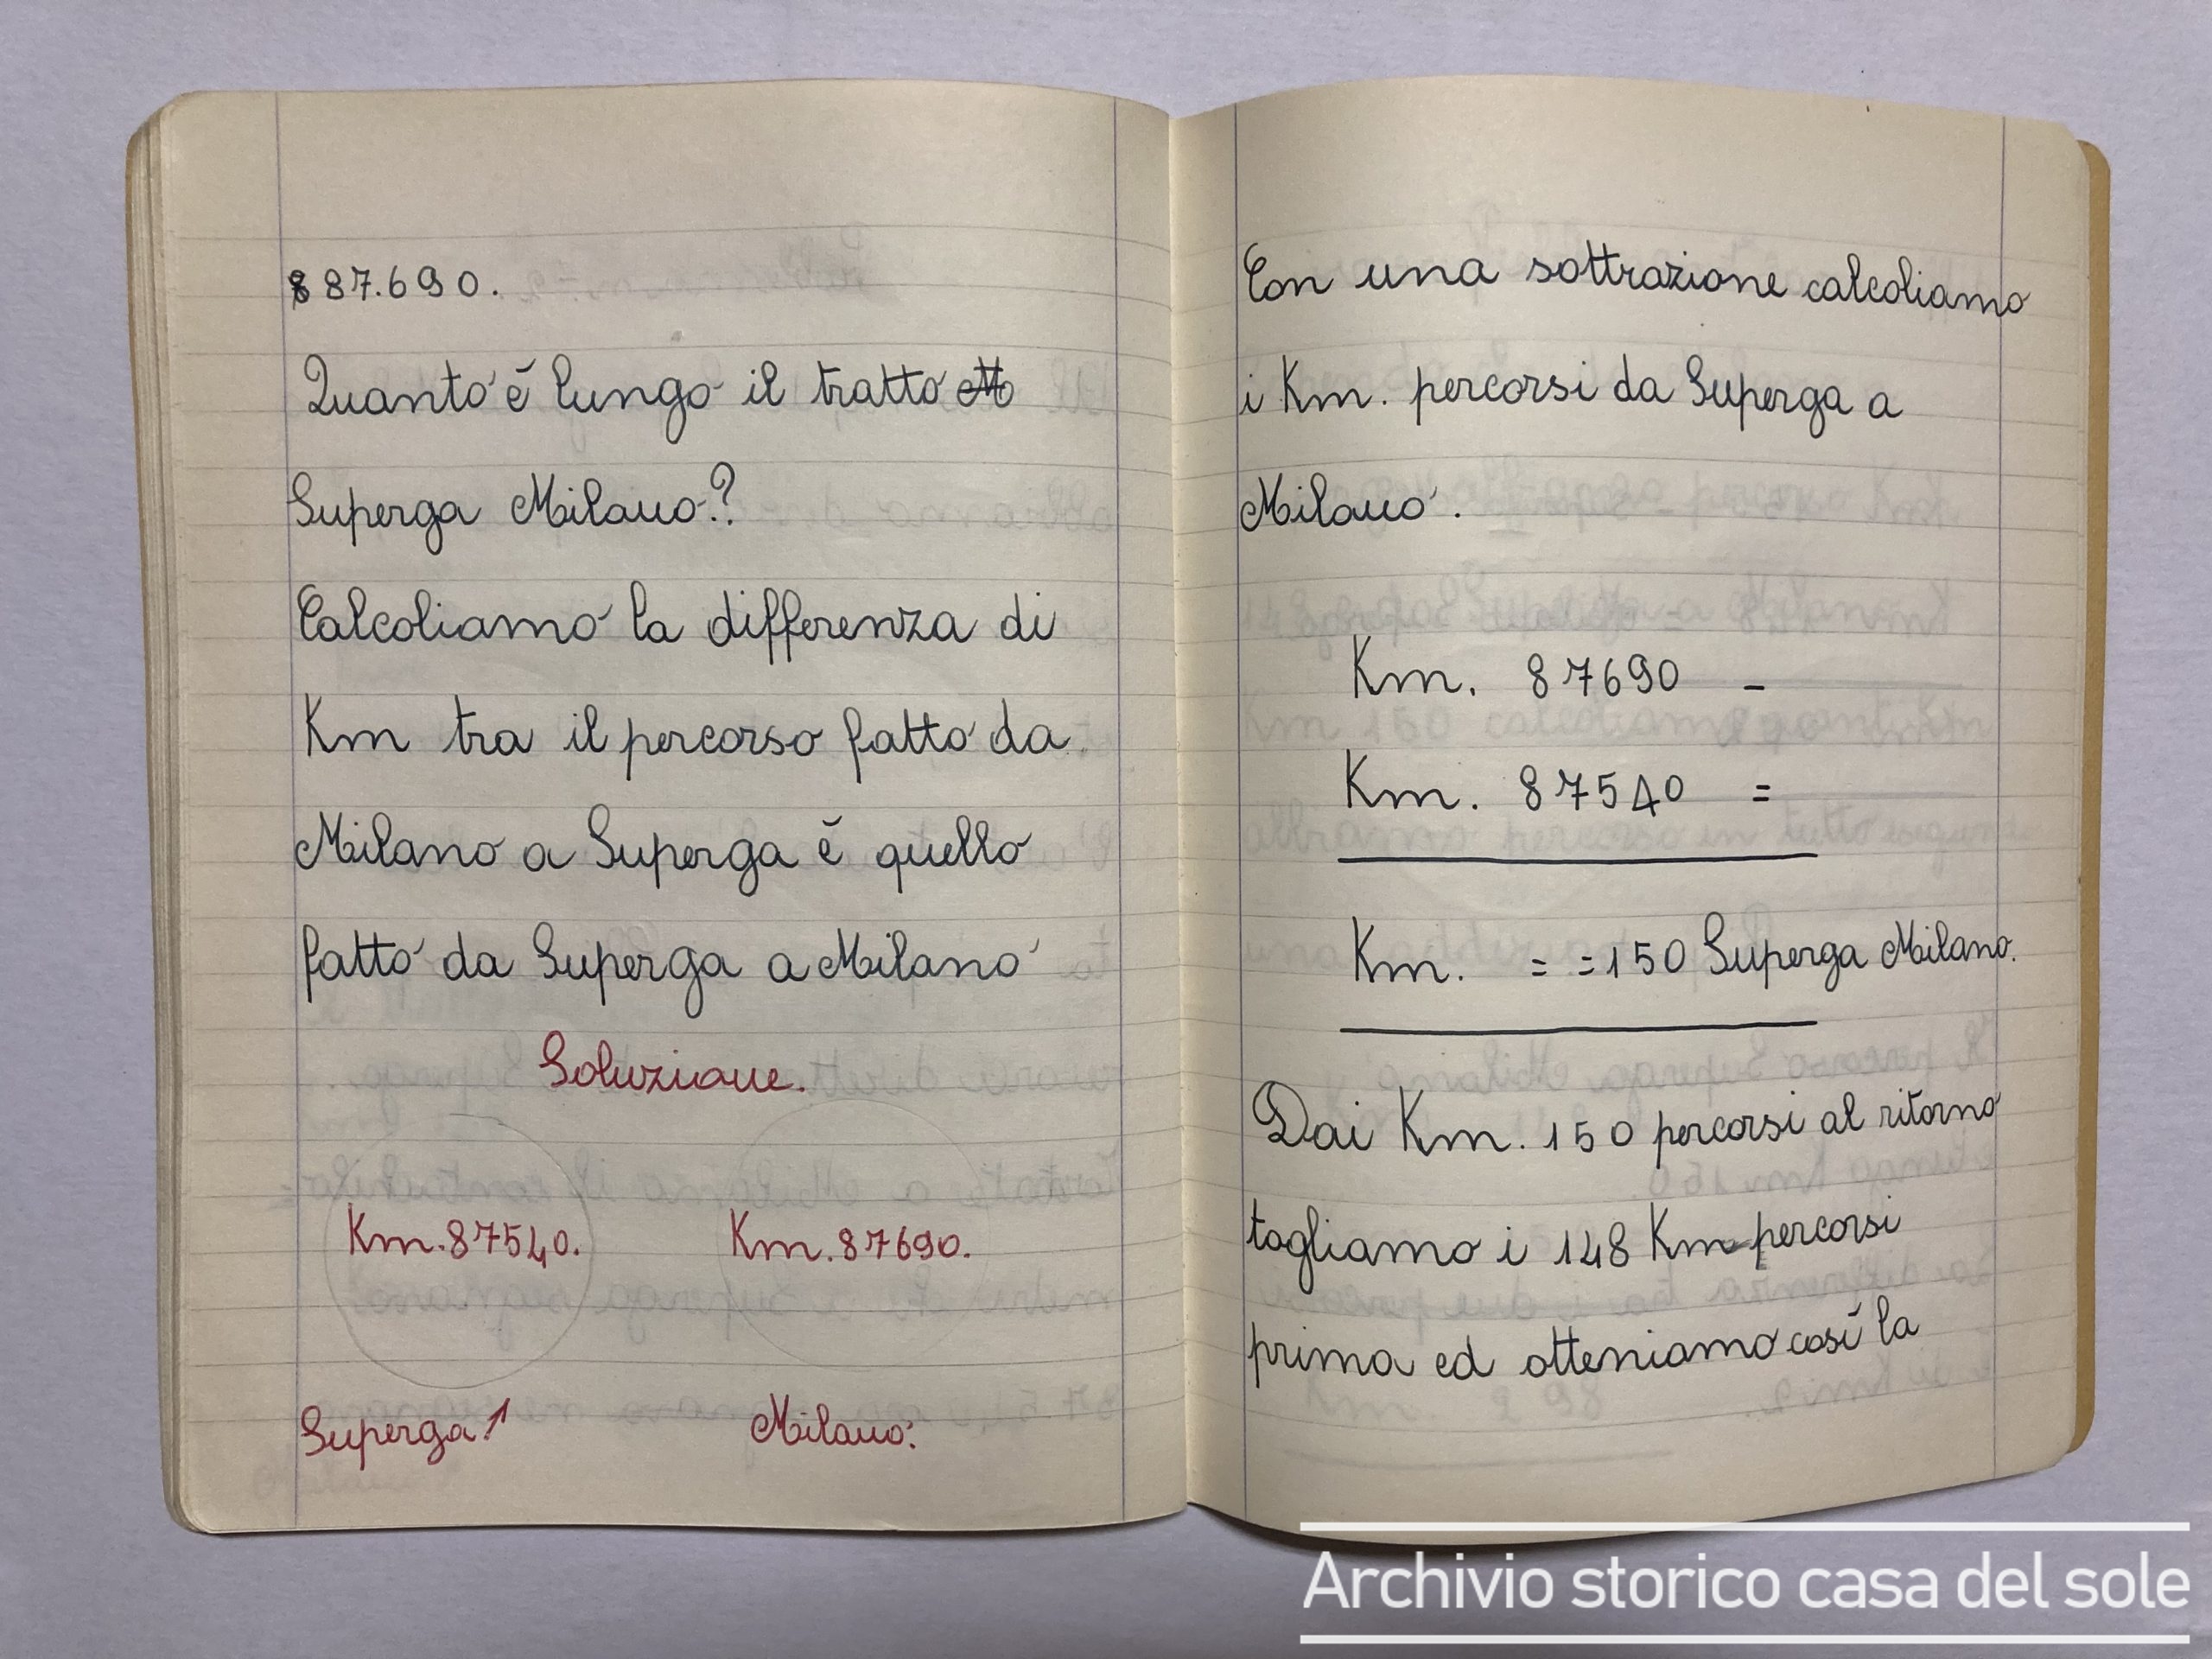 87.690.
Quanto é lungo il tratto
Superga Milano?
Calcoliamo la differenza di
Km tra il percorso fatto da
Milano a Superga é quello
fatto da Superga a Milano
Soluzione.
Km.87540. Km.87690.
Superga↑ Milano.
Con una sottrazione calcoliamo
i Km. percorsi da Superga a
Milano.
Km. 87690 -
Km. 87540 =
Km. = =150 Superga Milano.
Dai Km. 150 percorsi al ritorno
togliamo i 148 Km percorsi
prima ed otteniamo così la
Archivio storico casa del sole